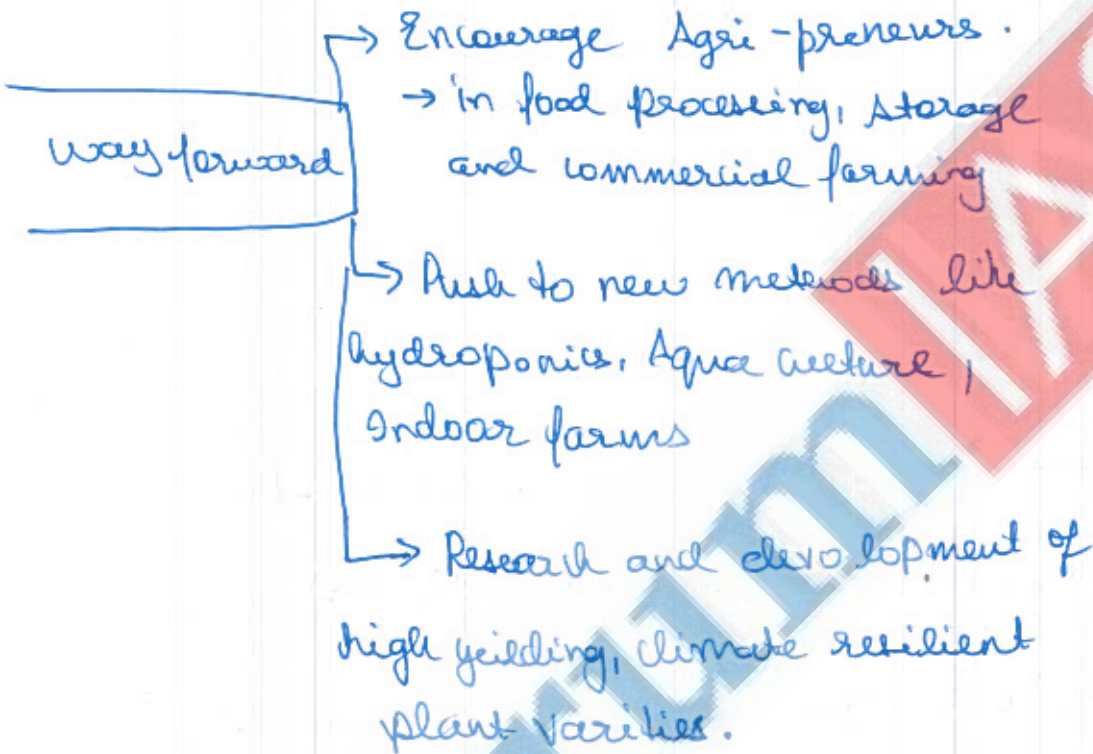 → Encourage Agri-preneurs.
→ in food processing, storage
way forward
and commercial farming
→ Push to new methods like
hydroponics, Aqua culture,
Indoor farms
→ Research and devolopment of
high yeilding, climate resilient
plant varities.
rum IAS